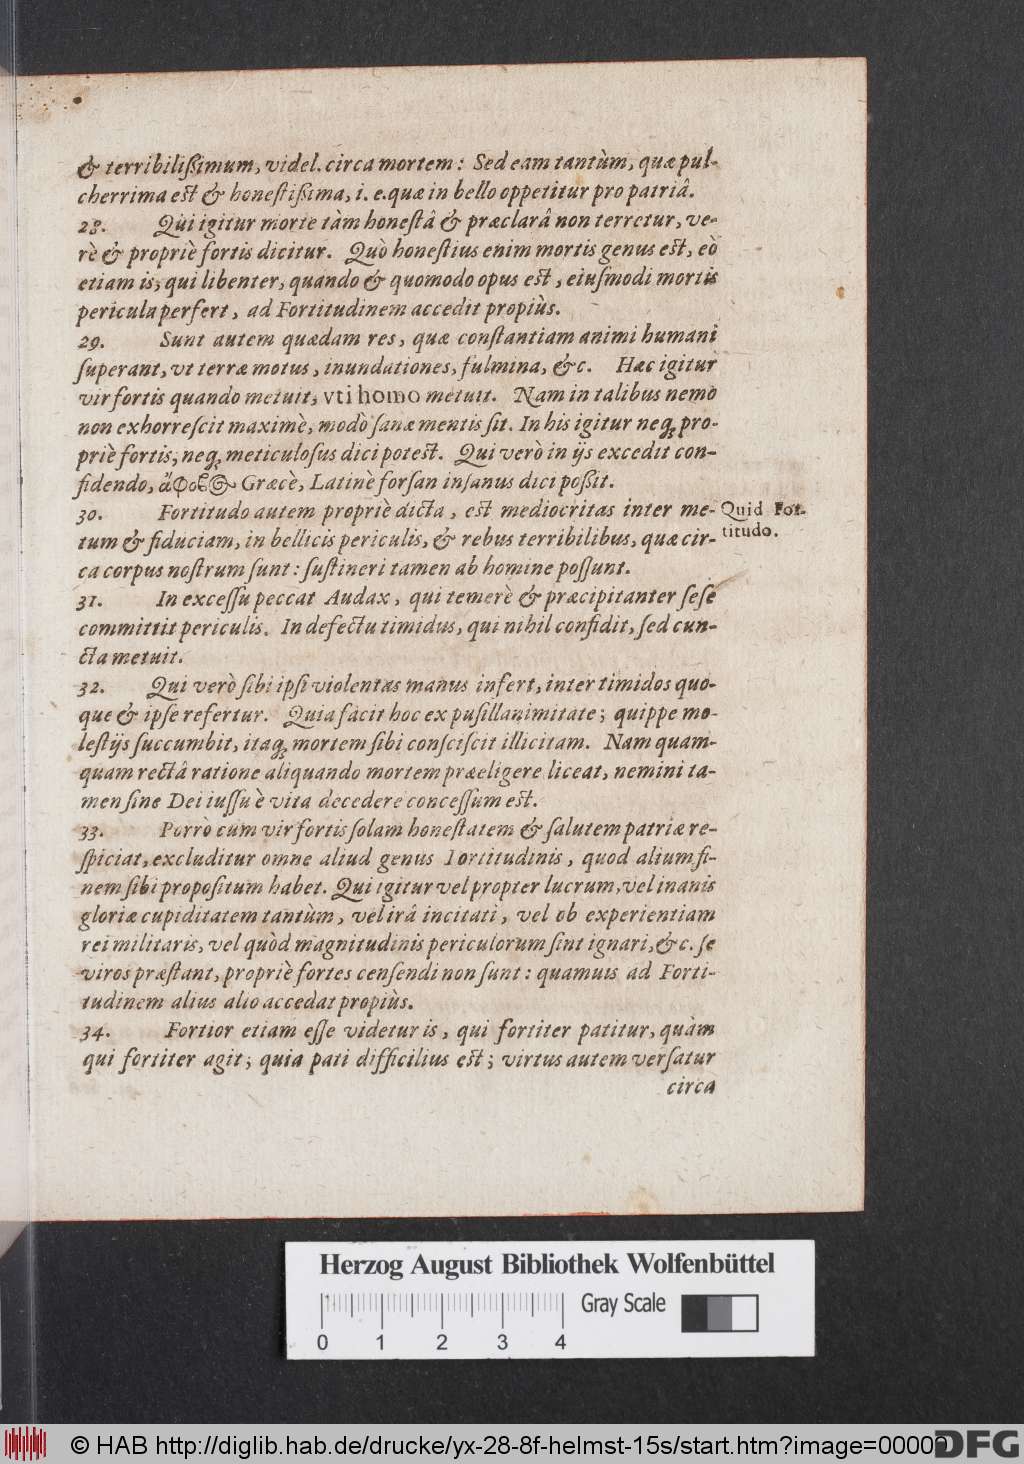 & terribilißimum, videl. circa mortem: Sed eam tantùm, quæ pul-
cherrima est & honestißima, i. e. quæ in bello oppetitur pro patriâ.
28. Qui igitur morte tàm honestâ & præclarâ non terretur, ve-
rè & propriè fortis dicitur. Quò honestius enim mortis genus est, eò
etiam is, qui libenter, quando & quomodo opus est, eiusmodi mortis
pericula perfert, ad Fortitudinem accedit propiùs.
29. Sunt autem quædam res, quæ constantiam animi humani
superant, vt terræ motus, inundationes, fulmina, &c. Hæc igitur
vir fortis quando metuit, vti homo metuit. Nam in talibus nemo
non exhorrescit maximè, modò sanæ mentis sit. In his igitur neq; pro-
priè fortis, neq; meticulosus dici potest. Qui verò in ijs excedit con-
fidendo, ἄφοβος Græcè, Latinè forsan insanus dici poßit.
30. Fortitudo autem propriè dicta, est mediocritas inter me-
Quid For-
tum & fiduciam, in bellicis periculis, & rebus terribilibus, quæ cir-
titudo.
ca corpus nostrum sunt: sustineri tamen ab homine possunt.
31. In excessu peccat Audax, qui temerè & præcipitanter sese
committit periculis. In defectu timidus, qui nihil confidit, sed cun-
cta metuit.
32. Qui verò sibi ipsi violentas manus infert, inter timidos quo-
que & ipse refertur. Quia facit hoc ex pusillanimitate; quippe mo-
lestijs succumbit, itaq; mortem sibi consciscit illicitam. Nam quam-
quam rectâ ratione aliquando mortem præeligere liceat, nemini ta-
men sine Dei iussu è vita decedere concessum est.
33. Porrò cum vir fortis solam honestatem & salutem patriæ re-
spiciat, excluditur omne aliud genus Fortitudinis, quod alium fi-
nem sibi propositum habet. Qui igitur vel propter lucrum, vel inanis
gloriæ cupiditatem tantùm, vel irâ incitati, vel ob experientiam
rei militaris, vel quòd magnitudinis periculorum sint ignari, &c. se
viros præstant, propriè fortes censendi non sunt: quamuis ad Forti-
tudinem alius alio accedat propiùs.
34. Fortior etiam esse videtur is, qui fortiter patitur, quàm
qui fortiter agit; quia pati difficilius est; virtus autem versatur
circa
Herzog August Bibliothek Wolfenbüttel
0 1 2 3 4 Gray Scale
© HAB http://diglib.hab.de/drucke/yx-28-8f-helmst-15s/start.htm?image=00009
DFG